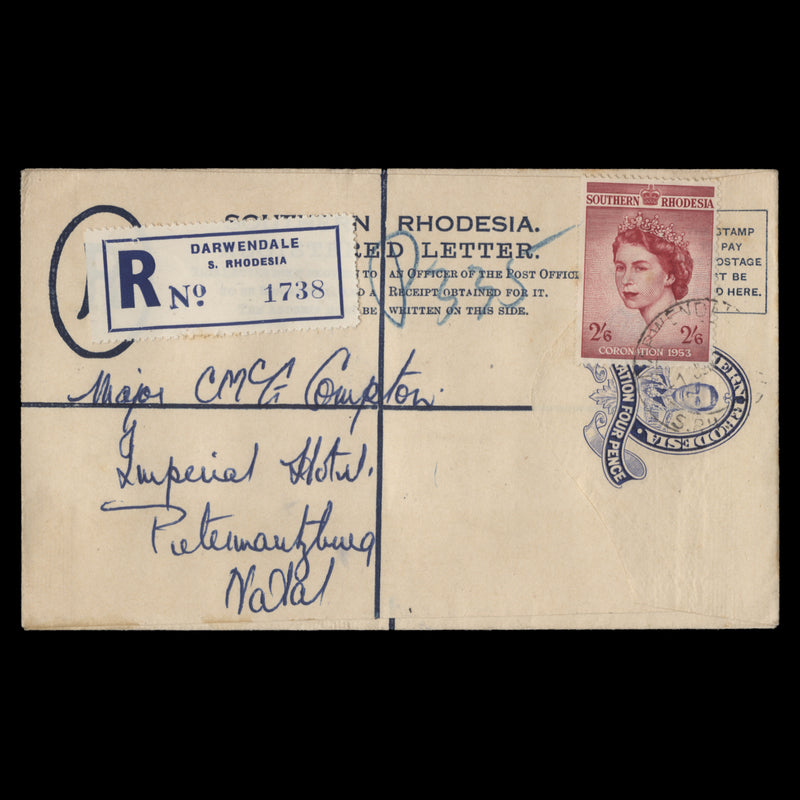 SOUTHERN RHODESIA.
RED LETTER.
TO AN OFFICER OF THE POST OFFIC
A RECEIPT OBTAINED FOR IT.
BE WRITTEN ON THIS SIDE.
DARWENDALE
S. RHODESIA
R No 1738
235
SOUTHERN RHODESIA
2/6 2/6
CORONATION 1953
STAMP
PAY
POSTAGE
BE
HERE.
RHODESIA
FOUR PENCE
Major CMG Compton.
Imperial Hotel.
Pietermaritzburg
Natal